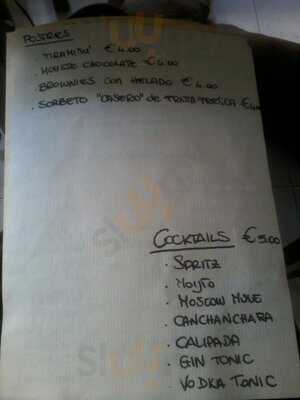 POSTRES
TIRAMISU' €4.00
• MOUSSE CHOCOLATE €4.00
BROWNIES CON HELADO €4.00
• SORBETO "CASERO" de FRUTA FRESCA €4
COCKTAILS €5.00
• SPRITZ
• MOJITO
• MOSCOW MULE
• CANCHANCHARA
• CALIPADA
• GIN TONIC
• VODKA TONIC